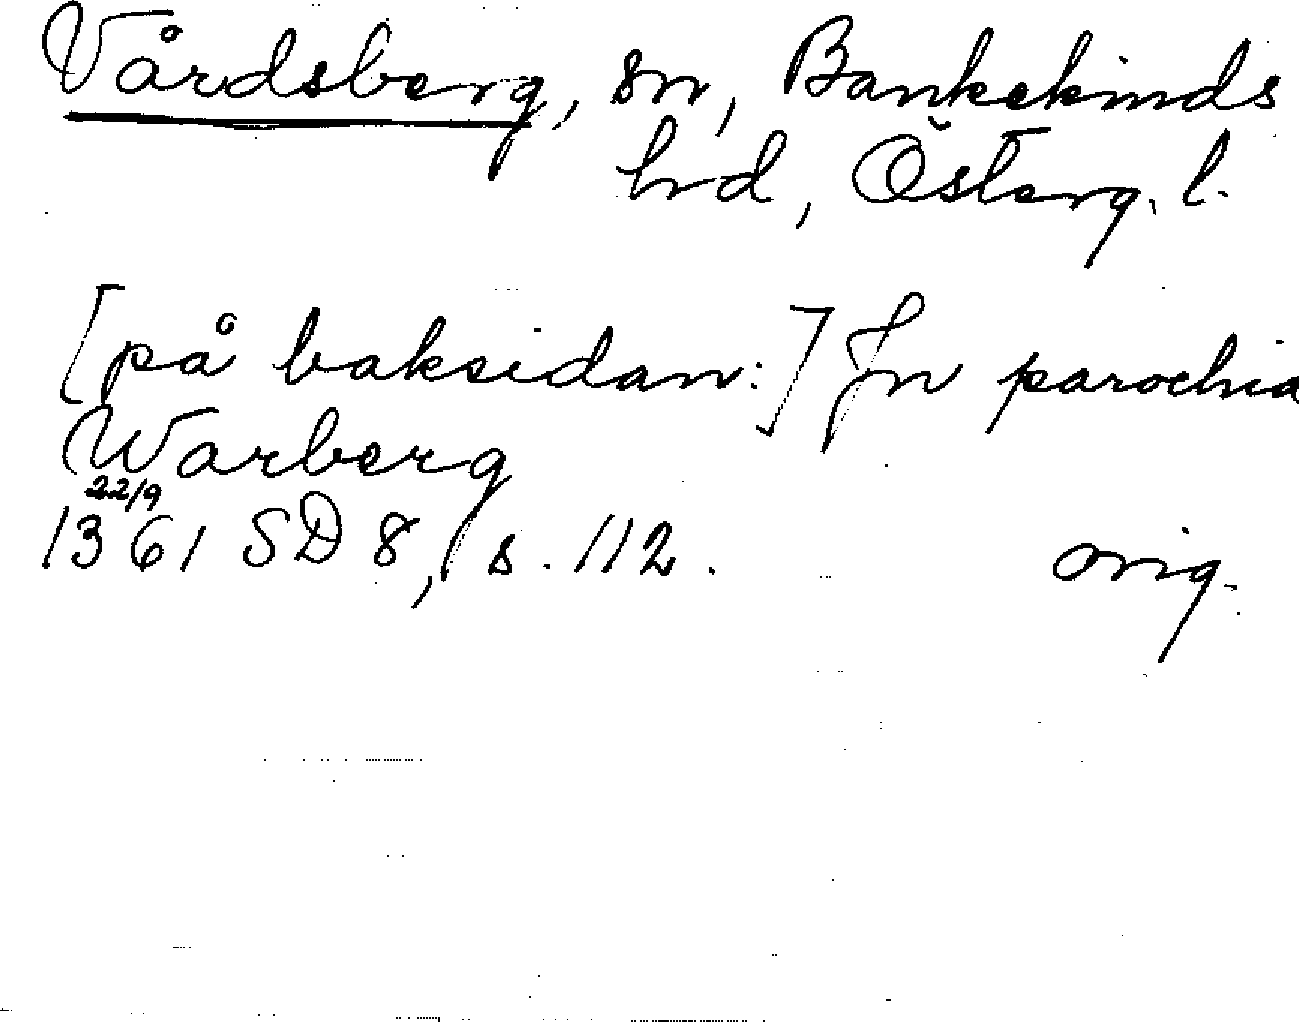 Vårdsberg, sn, Bankekinds
hrd, Österg. l.
[på baksidan:] In parochia
Warberg
22/9
1361 SD 8, s. 112. orig.